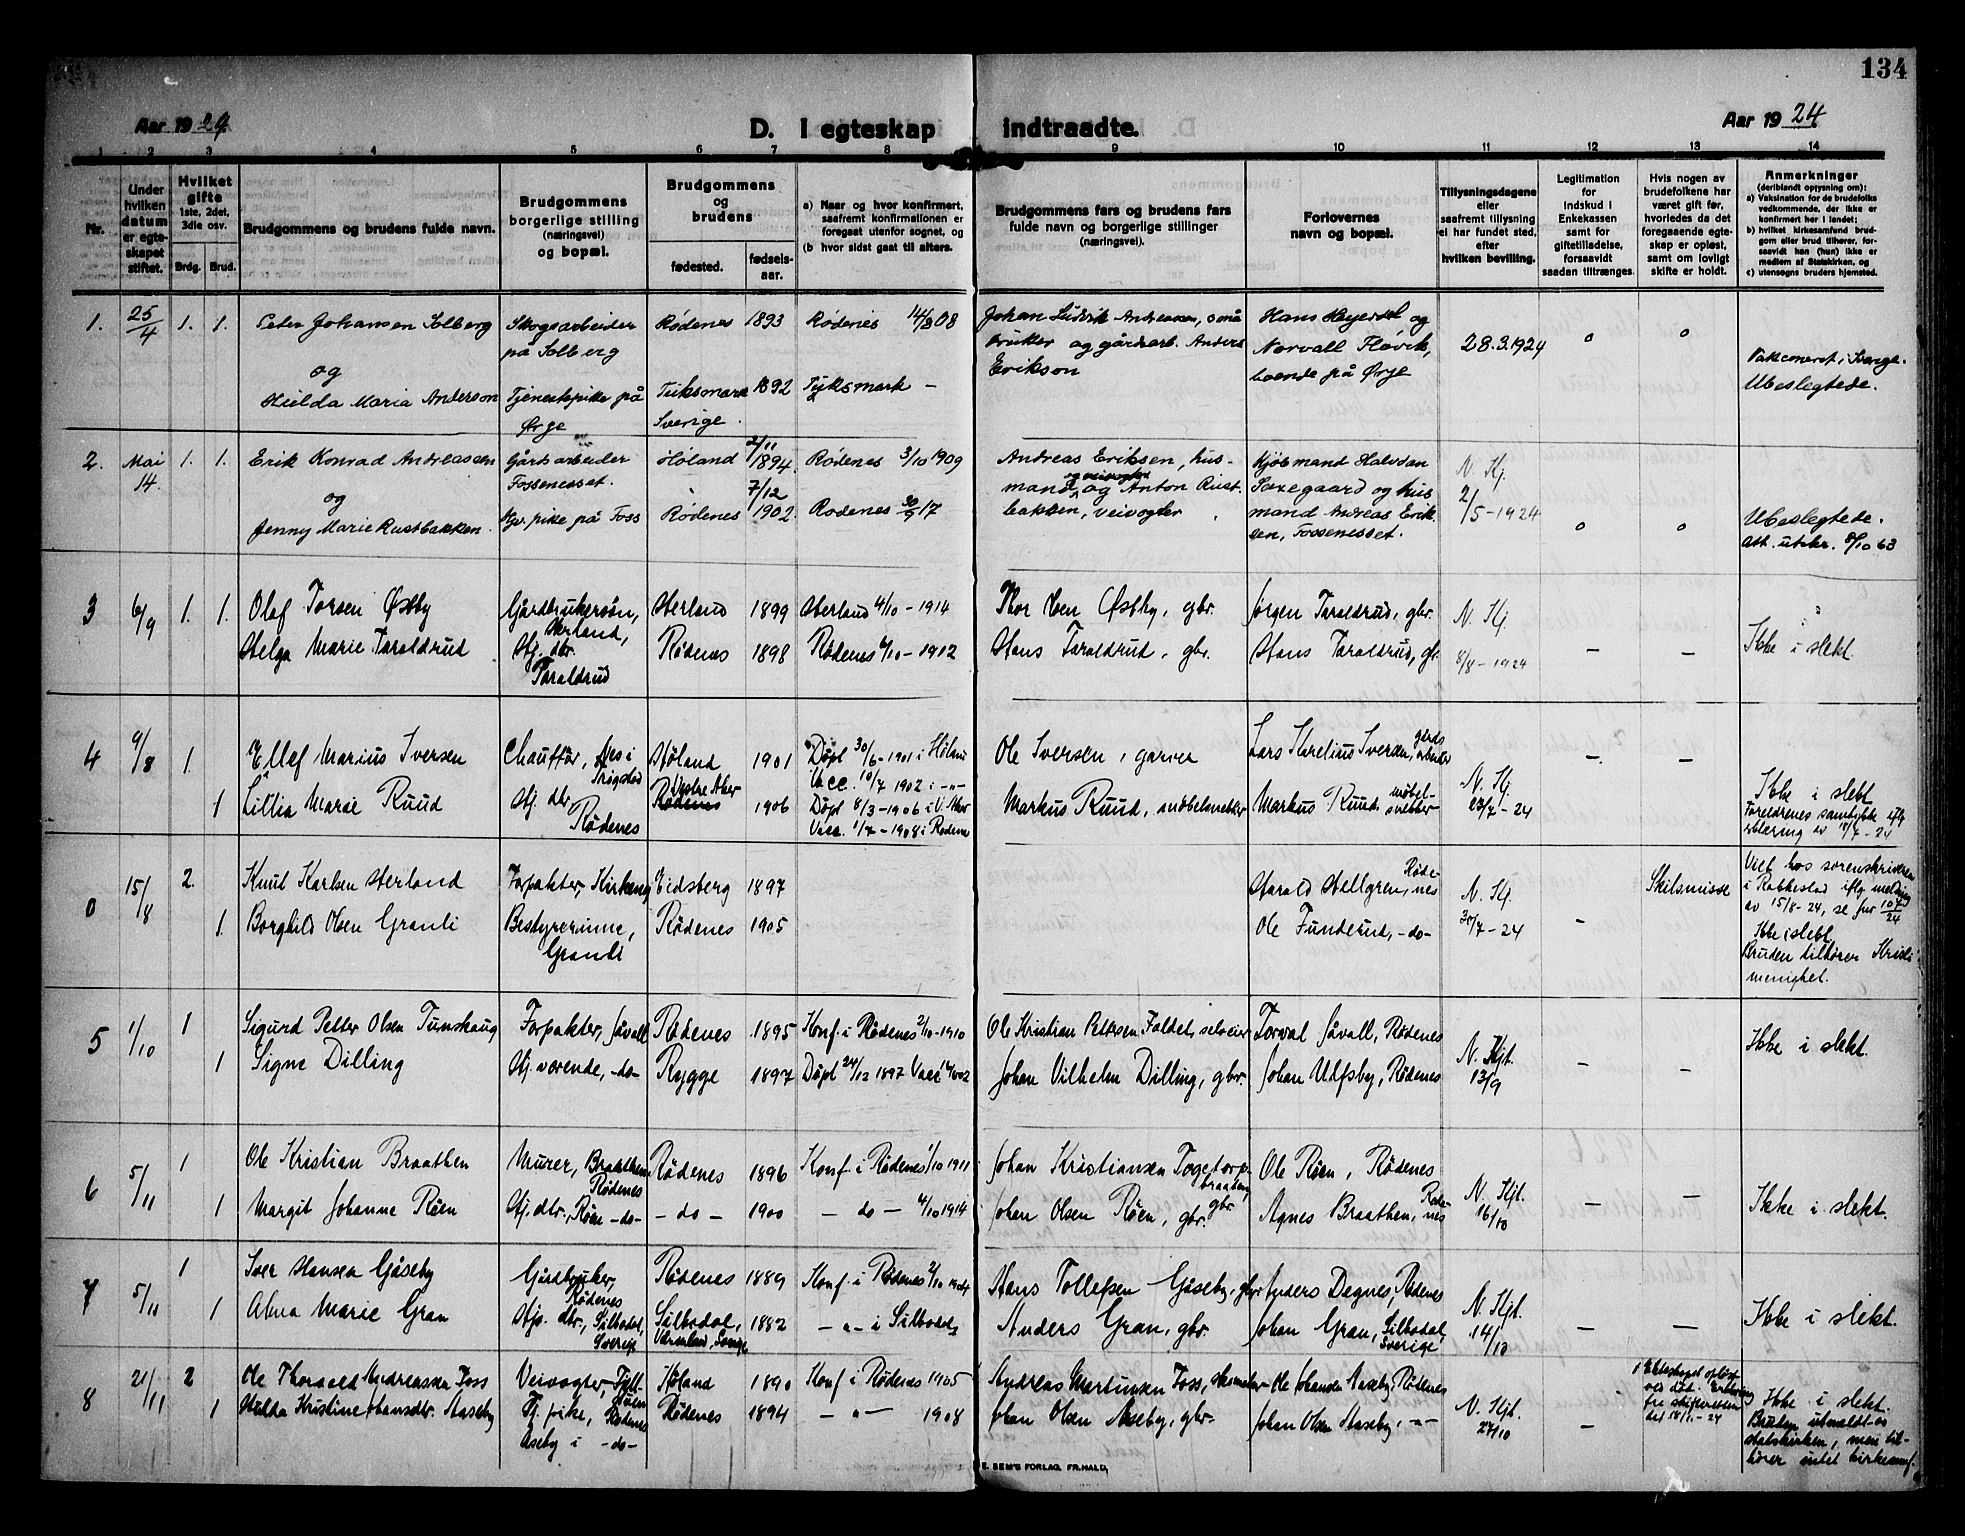 134
Aar 1924
D. I egteskap indtraadte.
Aar 1924
1 2 3 4 5 6 7 8 9 10 11 12 13 14
Nr.
Under hvilken datum er egteskapet stiftet.
Hvilket gifte
1ste, 2det, 3die osv.
Brdg. Brud.
Brudgommens og brudens fulde navn.
Brudgommens borgerlige stilling (næringsvei) og bopæl.
Brudgommens og brudens
fødested.
fødselsaar.
a) Naar og hvor konfirmert, saafremt konfirmationen er foregaat utenfor sognet, og
(b hvor sidst gaat til alters.
Brudgommens fars og brudens fars fulde navn og borgerlige stillinger (næringsvei).
Forlovernes navn og bopæl.
Tillysningsdagene eller saafremt tillysning ei har fundet sted, efter hvilken bevilling.
Legitimation for indskud i Enkekassen samt for giftetilladelse, forsaavidt saadan tiltrænges.
Hvis nogen av brudefolkene har været gift før, hvorledes da det foregaaende egteskap er opløst, samt om lovligt skifte er holdt.
Anmerkninger
(deriblandt oplysning om):
a) Vaksination for de brudefolks vedkommende, der ikke er konfirmert her i landet;
b) hvilket kirkesamfund brudgom eller brud tilhører, forsaavidt han (hun) ikke er medlem af Statskirken, og
c) utensogns bruders hjemsted.
1. 25/4 1. 1. Peter Johansen Solberg
og
Hulda Maria Anderson
Skogsarbeider
på Solberg
Tjenestepike på
Ørje
Rødenes 1893
Tuksmark 1892
Sverige.
Rødenes 14/3 08
Tuksmark –
Johan Ludvik Andreassen, små
bruker og gårdsarb. Anders
Erikson
Hans Heyerdal og
Norvall Flovik,
boende på Ørje
28.3.1924
o o
Ubeslegtede.
2. Mai 14. 1. 1. Erik Konrad Andreassen
og
Jenny Marie Rustbakken.
Gårdsarbeider
Fossenesset.
Hjv. pike på Foss
Høland 2/11 1894.
Rødenes 7/12 1902.
Rødenes 3/10 1909
Rødenes 30/9 17
Andreas Eriksen, hus-
mand og veivogter, og Anton Rust-
bakken, veivogter
Kjøbmand Halvdan
Saxegaard og hus
mand Andreas Erik
sen, Fossenesset.
N. Kj.
2/5 – 1924
o o
Ubeslegtede.
Att. utskr. 8/10 63
3 6/9 1. 1. Olaf Torsen Østby
Helga Marie Taraldrud
Gårdbrukersøn,
Herland,
Hj. dtr.
Taraldrud
Herland 1899
Rødenes 1898
Herland 4/10 – 1914
Rødenes 6/10 – 1912
Thor Olsen Østby, gbr.
Hans Taraldrud, gbr.
Jørgen Taraldrud, gbr.
Hans Taraldrud, gbr
N. Kj.
8/8 – 1924
– –
Ikke i slekt.
4 9/8 1. 1 Ellef Marius Iversen
Lillia Marie Ruud
Chauffør, Nes i
Trøgstad
Hj. dtr.
Rødenes
Høland 1901
Vestre Aker
Rødenes 1906
Døpt 30/6 – 1901 i Høland
Vacc. 10/7 1902 i – " –
Døpt 8/3 – 1906 i V. Aker
Vacc. 1/7 – 1908 i Rødenes
Ole Iversen, garver
Markus Ruud, møbelsnekker
Lars Threlius Iversen, gårdsarbeider
Markus Ruud, møbelsnekker
N. Kj.
23/7 – 24
– –
Ikke i slekt
Foreldrenes samtykke iflg
erklæring av 18/7 – 24
0 15/8 2. 1. Knut Karlsen Herland
Borghild Olsen Granli
Forpakter, Kirkeng
Bestyrerinne,
Granli
Eidsberg 1897
Rødenes 1905
Harald Hellgren, Rødenes
Ole Funderud, –do–
N. Kj.
30/7 – 24
–
Skilsmisse
Viet hos sorenskriveren
i Rakkestad iflg melding
av 15/8 – 24, se jnr 107/24
Ikke i slekt,
Bruden tilhører Kristi
menighet.
5 1/10 1 1 Sigurd Petter Olsen Tunshaug
Signe Dilling
Forpakter, Jåvall
Hj. værende, –do–
Rødenes 1895
Rygge 1897
Konf. i Rødenes 2/10 – 1910
Døpt 24/12 1897 Vacc 1902
Ole Kristian Pettersen Faldet, selveier
Johan Vilhelm Dilling, gbr.
Torval Jåvall, Rødenes
Johan Ulfsby, Rødenes
N. Kjt.
13/9
– –
Ikke i slekt.
6 5/11 1 1 Ole Kristian Braathen
Margit Johanne Røen
Murer, Braathen
Rødenes
Hj. dtr., Røen –do–
Rødenes 1896
– do – 1900
Konf. i Rødenes 1/10 1911
– do – 4/10 1914
Johan Kristiansen Togstorp-
braaten, gbr
Johan Olsen Røen, gbr.
Ole Røen, Rødenes
Agnes Braathen, Rødenes
N. Kjt.
16/10
– –
Ikke i slekt.
7 5/11 1 1 Iver Hansen Gåseby
Alma Marie Gran
Gårdbruker,
Rødenes
Hjv. dtr., Silbodal,
Sverige
Rødenes 1889
Silbodal, 1882
Värmland, Sverige
Konf. i Rødenes 2/10 1904
– " – i Silbodal
Hans Tollefsen Gåseby, gbr
Anders Gran, gbr.
Anders Degnes, Rødenes
Johan Gran, Silbodal,
Sverige
N. Kjt.
14/10
– –
Ikke i slekt.
8 21/11 2 1 Ole Thorvald Andreassen Foss
Hulda Kristine Johansdtr. Aaseby
Veivogter,
Rødenes
Tj. pike,
Åseby i –do–
Høland 1890
Rødenes 1894
Konf. i Rødenes 1905
– " – 1908
Andreas Martinsen Foss, skomaker
Johan Olsen Aaseby, gbr.
Ole Johansen Aaseby, Rødenes
Johan Olsen Aaseby, – " –
N. Kjt.
27/10
–
Ekteskapet opløst
ved død. Erklæring
fra skifteretten
del 18/11 – 24
Ikke i slekt.
Bruden utmeldt av
statskirken, men til-
hører intet kirkesamf.
E. SEM'S FORLAG, FR.HALD,